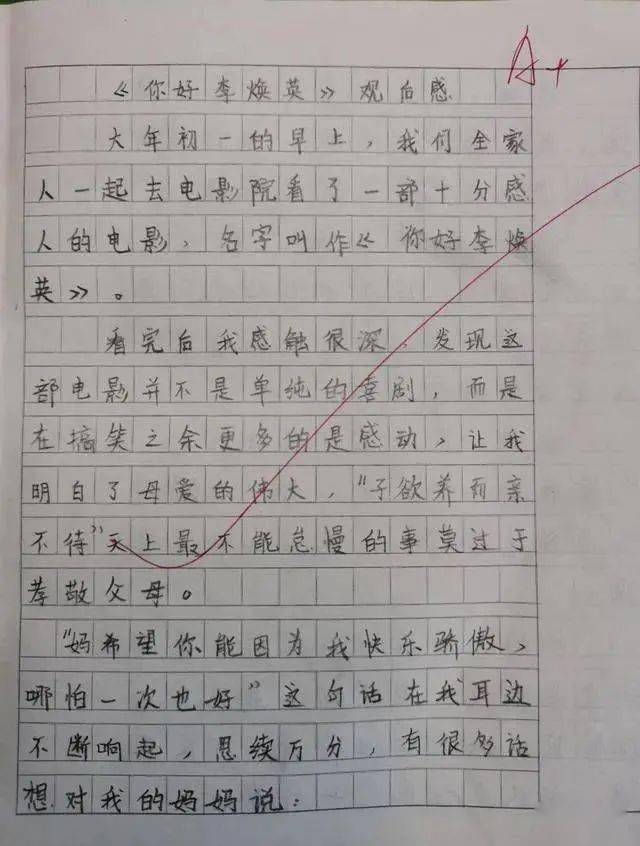 A+
《你好李焕英》观后感
大年初一的早上，我们全家
人一起去电影院看了一部十分感
人的电影，名字叫作《你好李焕
英》。
看完后我感触很深，发现这
部电影并不是单纯的喜剧，而是
在搞笑之余更多的是感动，让我
明白了母爱的伟大，“子欲养而亲
不待”天上最不能怠慢的事莫过于
孝敬父母。
“妈希望你能因为我快乐骄傲，
哪怕一次也好”这句话在我耳边
不断响起，思续万分，有很多话
想对我的妈妈说：